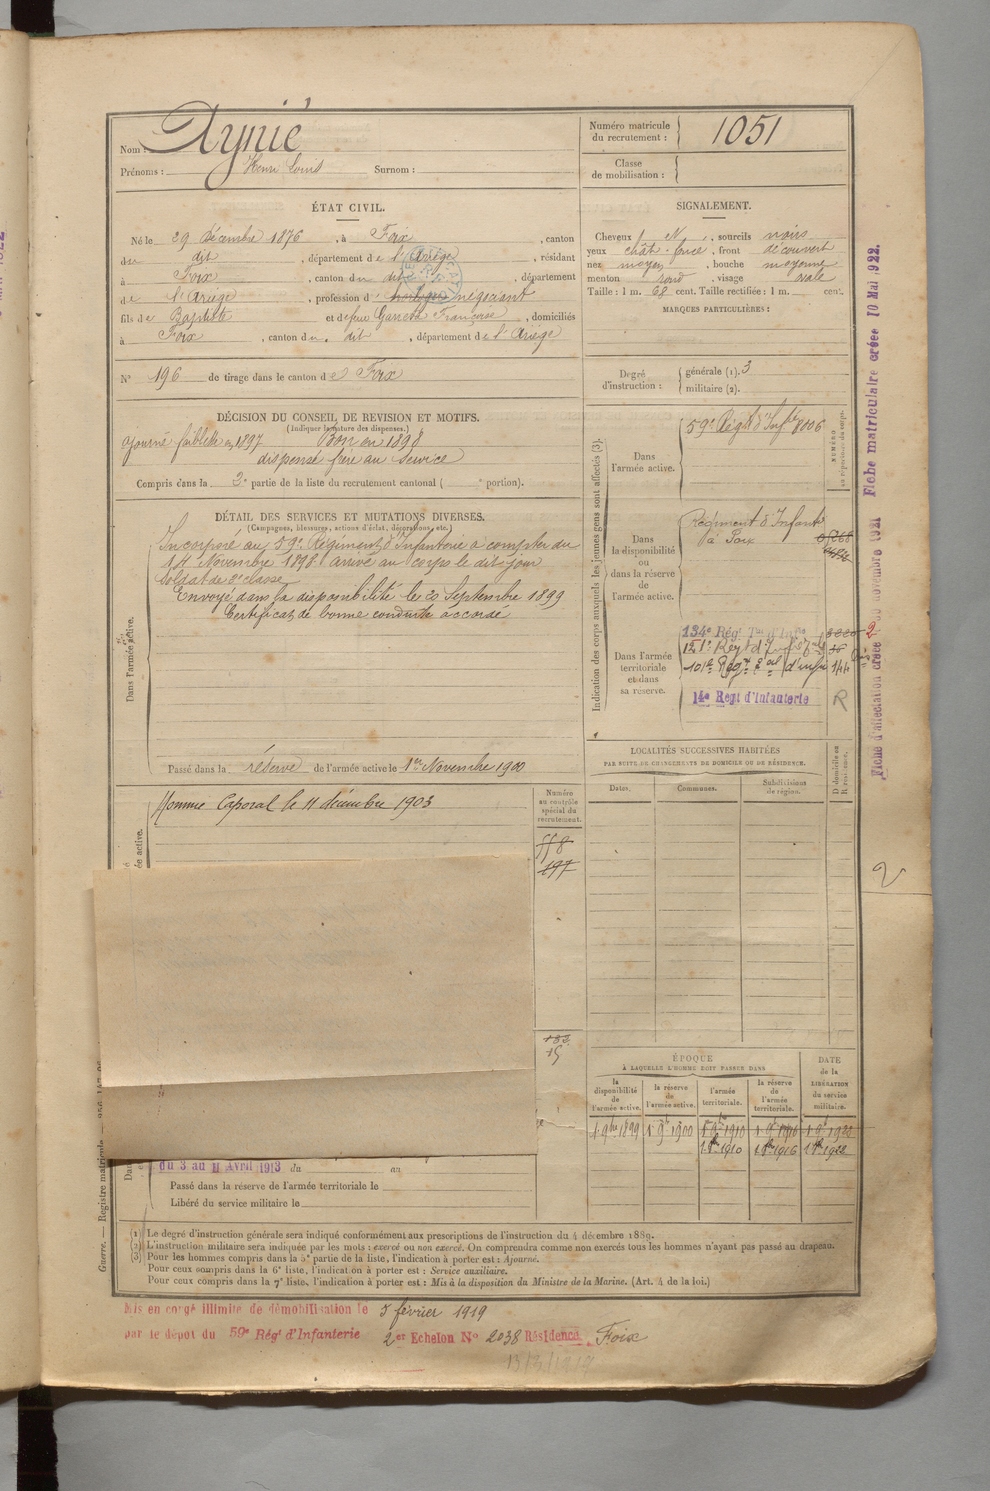 Nom : Aynié
Prénoms : Henri Louis Surnom :
Numéro matricule du recrutement : 1051
Classe de mobilisation :
ÉTAT CIVIL.
Né le 29 décembre 1876, à Foix, canton
du dit, département de l'Ariège, résidant
à Foix, canton du dit, département
de l'Ariège, profession d négociant
fils de Baptiste et de feue Françoise, domiciliés
à Foix, canton du dit, département de l'Ariège
N° 196 de tirage dans le canton de Foix
SIGNALEMENT.
Cheveux N, sourcils noirs
yeux chât. foncé, front découvert
nez moyen, bouche moyenne
menton rond, visage ovale
Taille : 1 m. 68 cent. Taille rectifiée : 1 m. cent.
MARQUES PARTICULIÈRES :
Degré d'instruction : générale (1). 3
militaire (2).
DÉCISION DU CONSEIL DE REVISION ET MOTIFS.
(Indiquer la nature des dispenses.)
ajourné faiblesse en 1897 Bon en 1898
dispensé frère au service
Compris dans la 3e partie de la liste du recrutement cantonal ( e portion).
DÉTAIL DES SERVICES ET MUTATIONS DIVERSES.
(Campagnes, blessures, actions d'éclat, décorations, etc.)
Dans l'armée active.
Incorporé au 59e Régiment d'Infanterie à compter du
14 Novembre 1898. arrivé au corps le dit jour
soldat de 2e classe
Envoyé dans la disponibilité le 20 Septembre 1899
Certificat de bonne conduite accordé
Passé dans la réserve de l'armée active le 1er Novembre 1900
Indication des corps auxquels les jeunes gens sont affectés (3).
NUMÉRO au répertoire du corps.
Dans l'armée active.
59e Régt d'Infie 8006
Dans la disponibilité ou dans la réserve de l'armée active.
Régiment d'Infant
à Foix
Dans l'armée territoriale et dans sa réserve.
134e Régt Ter d'Infie
101e Régt d'Infie 144
14e Regt d'Infanterie R
Fiche d'affectation créée novembre 1921 Fiche matriculaire créée 10 Mai 1922.
LOCALITÉS SUCCESSIVES HABITÉES
PAR SUITE DE CHANGEMENTS DE DOMICILE OU DE RÉSIDENCE.
Dates. Communes. Subdivisions de région. D domicile ou R résidence.
Nommé Caporal le 11 décembre 1903
Numéro au contrôle spécial du recrutement.
558
197
15
2
ÉPOQUE
À LAQUELLE L'HOMME DOIT PASSER DANS
la disponibilité de l'armée active.
la réserve de l'armée active.
l'armée territoriale.
la réserve de l'armée territoriale.
DATE de la LIBÉRATION du service militaire.
1. 9bre 1899 1. 9bre 1900 1. 9bre 1910 1. 9bre 1916 1. 9bre 1922
1. 8bre 1910 1. 8bre 1916 1. 8bre 1922
du 3 au 11 Avril 1913 du au
Passé dans la réserve de l'armée territoriale le
Libéré du service militaire le
Guerre. — Registre matricule. —
(1) Le degré d'instruction générale sera indiqué conformément aux prescriptions de l'instruction du 4 décembre 1889.
(2) L'instruction militaire sera indiquée par les mots : exercé ou non exercé. On comprendra comme non exercés tous les hommes n'ayant pas passé au drapeau.
(3) Pour les hommes compris dans la 5e partie de la liste, l'indication à porter est : Ajourné.
Pour ceux compris dans la 6e liste, l'indication à porter est : Service auxiliaire.
Pour ceux compris dans la 7e liste, l'indication à porter est : Mis à la disposition du Ministre de la Marine. (Art. 4 de la loi.)
Mis en congé illimité de démobilisation le 5 février 1919
par le dépôt du 59e Régt d'Infanterie 2er Echelon No 2038 Résidence Foix
13/3/1919